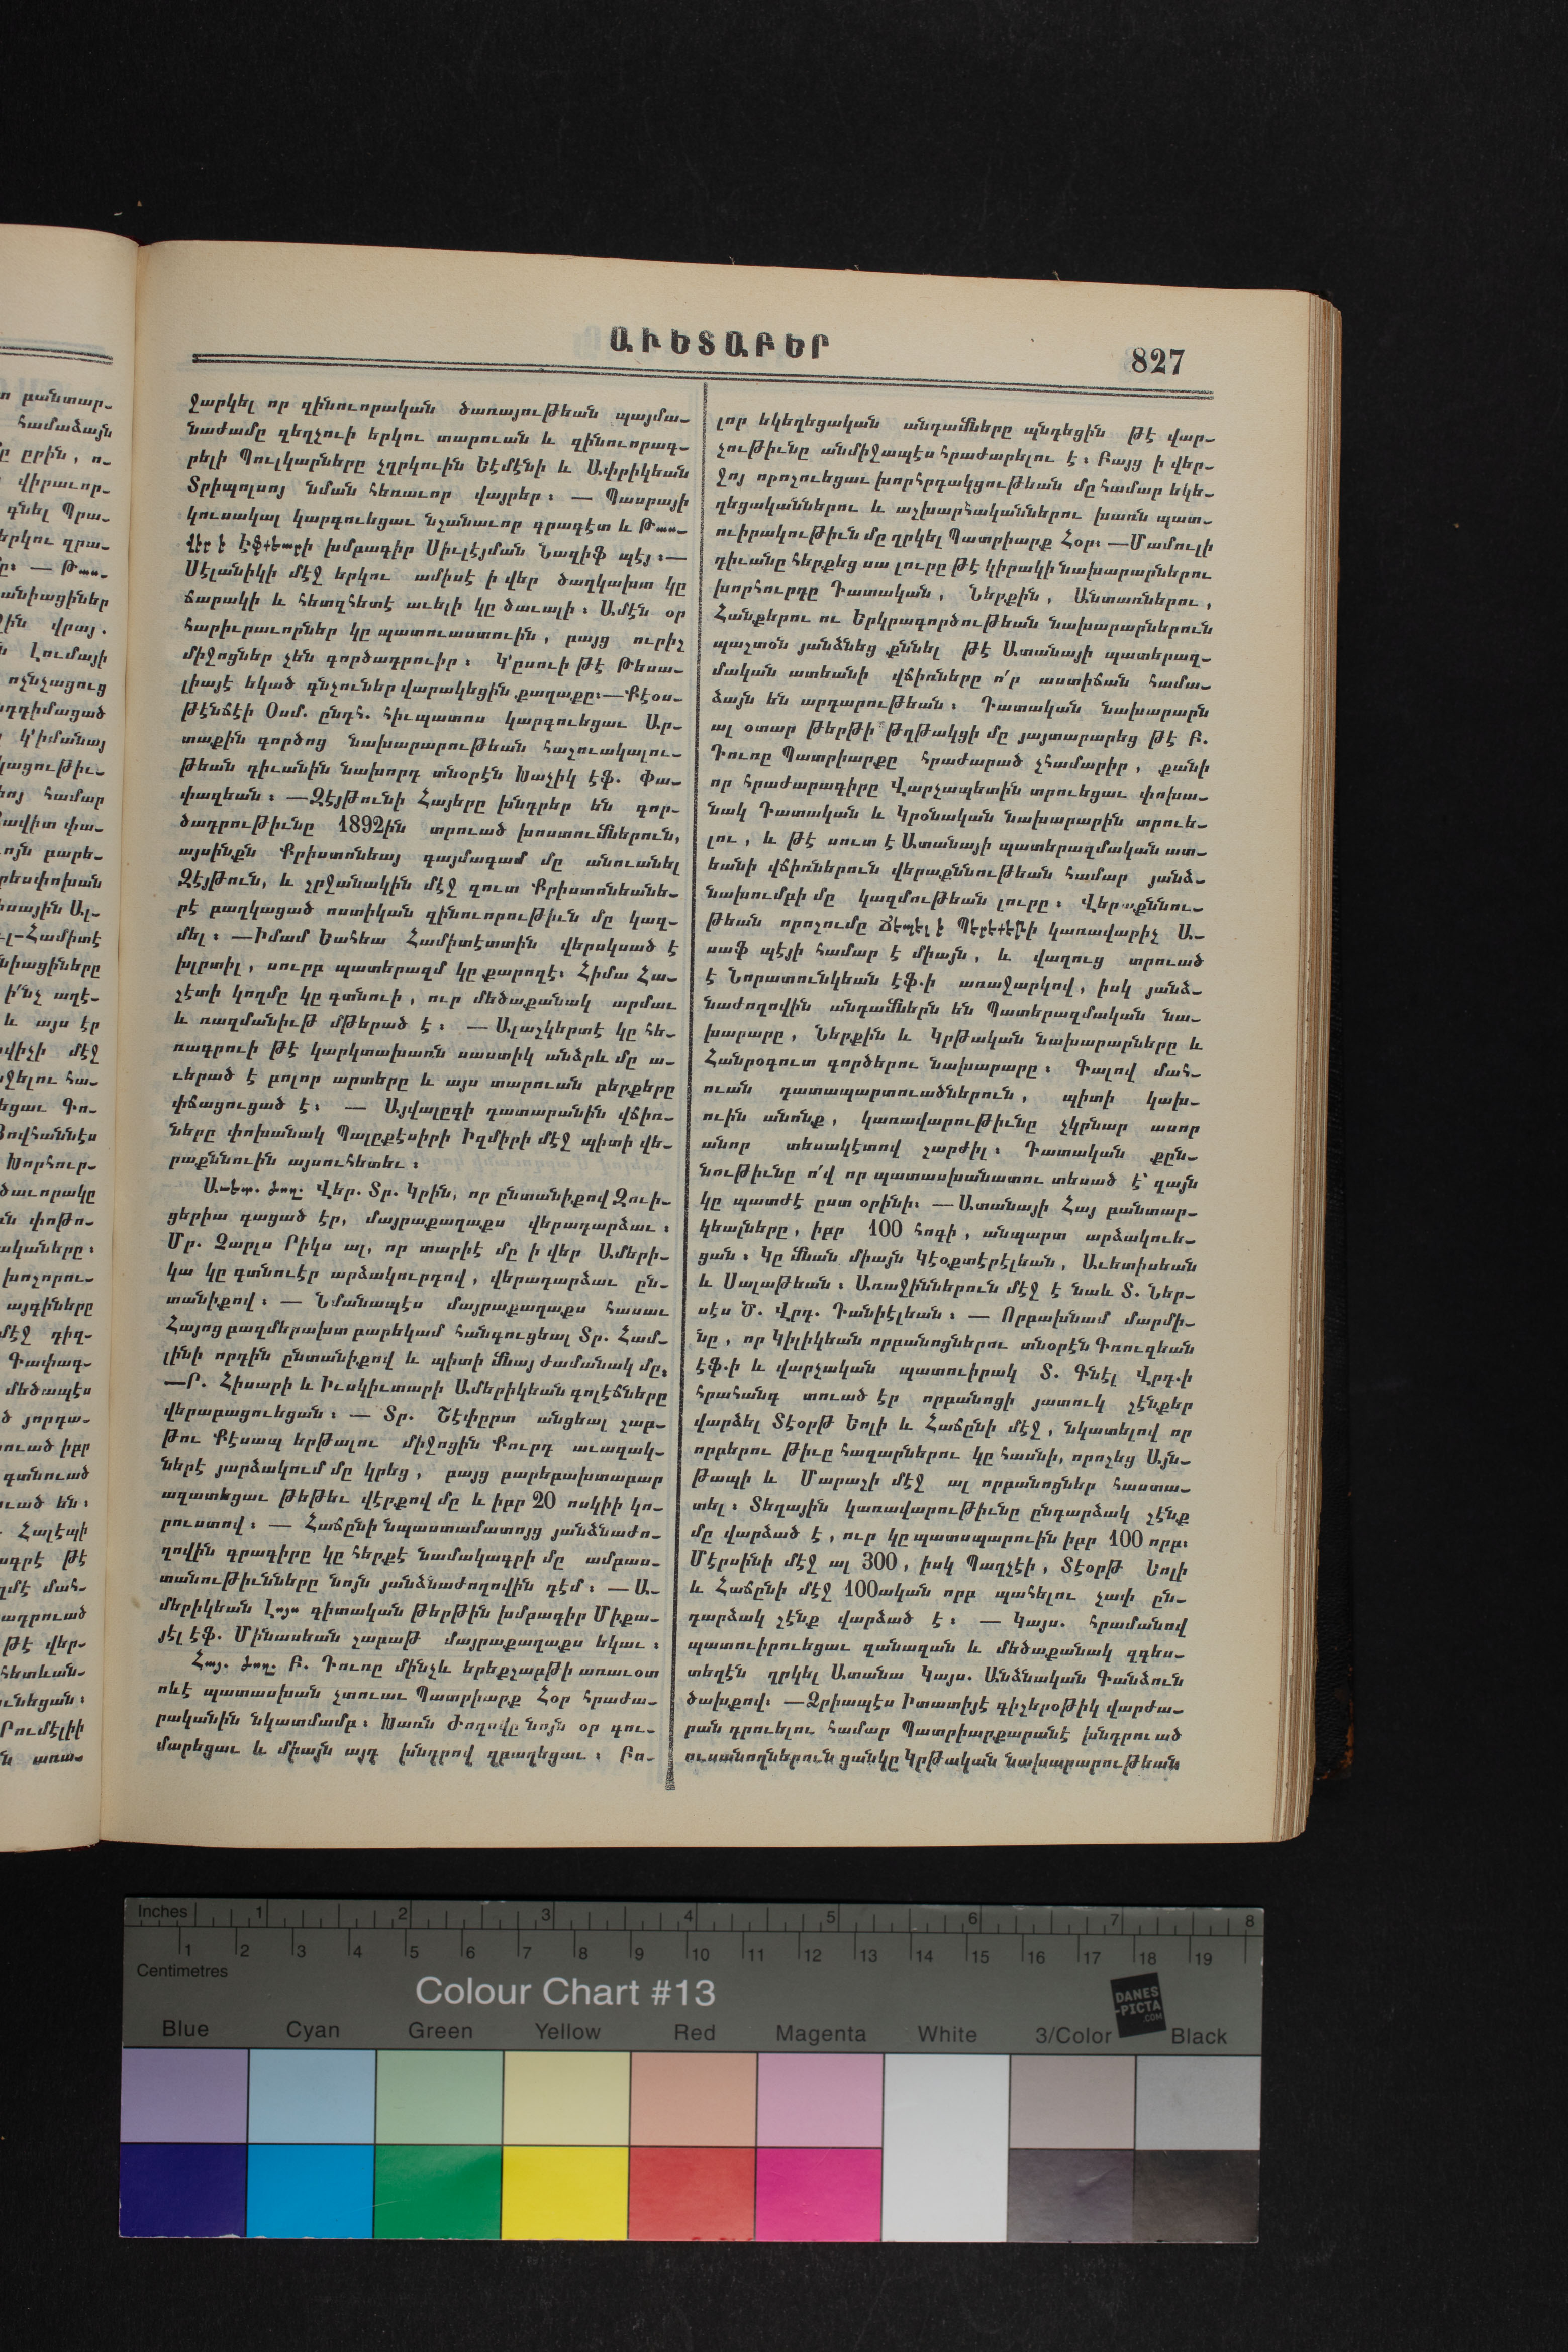 ԱՒԵՏԱԲԵՐ
827
ջարկել որ զինուորական ծառայութեան պայմա-
նաժամը զեղչուի երկու տարուան և զինուորագ-
րելի Պուլկարները չղրկուին Եէմէնի և Ափրիկեան
Տրիպոլսոյ նման հեռաւոր վայրեր։ — Պասրայի
կուսակալ կարգուեցաւ նշանաւոր գրագէտ և Թաս-
վիր ի Էֆքեարի խմբագիր Սիւլէյման Նազիֆ պէյ։—
Սէլանիկի մէջ երկու ամիսէ ի վեր ծաղկախտ կը
ճարակի և հետզհետէ աւելի կը ծաւալի։ Ամէն օր
հարիւրաւորներ կը պատուաստուին, բայց ուրիչ
միջոցներ չեն գործադրուիր։ Կ՚ըսուի թէ Թեսա-
լիայէ եկած գնչուներ վարակեցին քաղաքը։—Քէօս-
թէնճէի Օսմ. ընդհ. հիւպատոս կարգուեցաւ Ար-
տաքին գործոց նախարարութեան հաշուակալու-
թեան դիւանին նախորդ տնօրէն Խաչիկ էֆ. Փա-
փազեան։ —Զէյթունի Հայերը խնդրեր են գոր-
ծադրութիւնը 1892ին տրուած խոստումներուն,
այսինքն Քրիստոնեայ գայմագամ մը անուանել
Զէյթուն, և շրջանակին մէջ զուտ Քրիստոնեանե-
րէ բաղկացած ոստիկան զինուորութիւն մը կազ-
մել։ —Իմամ Եահեա Համիտէտտին վերսկսած է
խլրտիլ, սուրբ պատերազմ կը քարոզէ։ Հիմա Հա-
չէտի կողմը կը գտնուի, ուր մեծաքանակ արմաւ
և ռազմանիւթ մթերած է։ — Ալաշկերտէ կը հե-
ռագրուի թէ կարկտախառն սաստիկ անձրև մը ա-
ւերած է բոլոր արտերը և այս տարուան բերքերը
փճացուցած է։ — Այվալըգի դատարանին վճիռ-
ները փոխանակ Պալըքէսիրի Իզմիրի մէջ պիտի վե-
րաքննուին այսուհետեւ։
Աւետ. ժող. Վեր. Տր. Կրին, որ ընտանիքով Զուի-
ցերիա գացած էր, մայրաքաղաքս վերադարձաւ։
Մր. Չարլս Րիկս ալ, որ տարիէ մը ի վեր Ամերի-
կա կը գտնուէր արձակուրդով, վերադարձաւ ըն-
տանիքով։ — Նմանապէս մայրաքաղաքս հասաւ
Հայոց բազմերախտ բարեկամ հանգուցեալ Տր. Համ-
լինի որդին ընտանիքով և պիտի մնայ ժամանակ մը։
—Ր. Հիսարի և Իւսկիւտարի Ամերիկեան գոլէճները
վերաբացուեցան։ — Տր. Շէփըրտ անցեալ շաբ-
թու Քէսապ երթալու միջոցին Քուրդ աւազակ-
ներէ յարձակում մը կրեց, բայց բարեբախտաբար
ազատեցաւ թեթեւ վէրքով մը և իբր 20 ոսկիի կո-
րուստով։ — Հաճընի նպաստամատոյց յանձնաժո-
ղովին գրագիրը կը հերքէ նամակագրի մը ամբաս-
տանութիւնները նոյն յանձնաժողովին դէմ։ —Ա-
մերիկեան Լոյս գիտական թերթին խմբագիր Միքա-
յէլ էֆ. Մինասեան շաբաթ մայրաքաղաքս եկաւ։
Հայ. ժող. Բ. Դուռը մինչև երեքշաբթի առաւօտ
ոևէ պատասխան չտուաւ Պատրիարք Հօր հրաժա-
րականին նկատմամբ։ Խառն Ժողովը նոյն օր գու-
մարեցաւ և միայն այդ խնդրով զբաղեցաւ։ Բո-
լոր եկեղեցական անդամները պնդեցին թէ վար-
չութիւնը անմիջապէս հրաժարելու է։ Բայց ի վեր-
ջոյ որոշուեցաւ խորհրդակցութեան մը համար եկե-
ղեցականներու և աշխարհականներու խառն պատ-
ուիրակութիւն մը ղրկել Պատրիարք Հօր։ —Մամուլի
դիւանը հերքեց սա լուրը թէ կիրակի նախարարներու
խորհուրդը Դատական, Ներքին, Անտառներու,
Հանքերու ու Երկրագործութեան նախարարներուն
պաշտօն յանձնեց քննել թէ Ատանայի պատերազ-
մական ատեանի վճիռները ո՛ր աստիճան համա-
ձայն են արդարութեան։ Դատական նախարարն
ալ օտար թերթի թղթակցի մը յայտարարեց թէ Բ.
Դուռը Պատրիարքը հրաժարած չհամարիր, քանի
որ հրաժարագիրը Վարչապետին տրուեցաւ փոխա-
նակ Դատական և Կրօնական նախարարին տրուե-
լու, և թէ սուտ է Ատանայի պատերազմական ատ-
եանի վճիռներուն վերաքննութեան համար յանձ-
նախումբի մը կազմութեան լուրը։ Վերաքննու-
թեան որոշումը Ճեպել ի Պերեքեթի կառավարիչ Ա-
սաֆ պէյի համար է միայն, և վաղուց տրուած
է Նորատունկեան էֆ.ի առաջարկով, իսկ յանձ-
նաժողովին անդամներն են Պատերազմական նա-
խարարը, Ներքին և Կրթական նախարարները և
Հանրօգուտ գործերու նախարարը։ Գալով մահ-
ուան դատապարտուածներուն, պիտի կախ-
ուին անոնք, կառավարութիւնը չկրնար ասոր
անոր տեսակէտով շարժիլ։ Դատական քըն-
նութիւնը ո՛վ որ պատասխանատու տեսած է՝ զայն
կը պատժէ ըստ օրինի։ —Ատանայի Հայ բանտար-
կեալները, իբր 100 հոգի, անպարտ արձակուե-
ցան։ Կը մնան միայն Կէօքտէրէլեան, Աւետիսեան
և Սալաթեան։ Առաջիններուն մէջ է նաև Տ. Ներ-
սէս Ծ. Վրդ. Դանիէլեան։ — Որբախնամ մարմի-
նը, որ Կիլիկեան որբանոցներու տնօրէն Գռուզեան
էֆ.ի և վարչական պատուիրակ Տ. Գնէլ Վրդ.ի
հրահանգ տուած էր որբանոցի յատուկ շէնքեր
վարձել Տէօրթ Եոլի և Հաճընի մէջ, նկատելով որ
որբերու թիւը հազարներու կը հասնի, որոշեց Այն-
թապի և Մարաշի մէջ ալ որբանոցներ հաստա-
տել։ Տեղային կառավարութիւնը ընդարձակ շէնք
մը վարձած է, ուր կը պատսպարուին իբր 100 որբ։
Մէրսինի մէջ ալ 300, իսկ Պաղչէի, Տէօրթ Եոլի
և Հաճընի մէջ 100ական որբ պահելու չափ ըն-
դարձակ շէնք վարձած է։ — Կայս. հրամանով
պատուիրուեցաւ զանազան և մեծաքանակ զգես-
տեղէն ղրկել Ատանա Կայս. Անձնական Գանձուն
ծախքով։ —Ձրիապէս Իտատիյէ գիշերօթիկ վարժա-
րան դրուելու համար Պատրիարքարանէ խնդրուած
ուսանողներուն ցանկը Կրթական նախարարութեան
Inches 1 2 3 4 5 6 7 8
1 2 3 4 5 6 7 8 9 10 11 12 13 14 15 16 17 18 19
Centimetres
Colour Chart #13
DANES
-PICTA
.COM
Blue Cyan Green Yellow Red Magenta White 3/Color Black